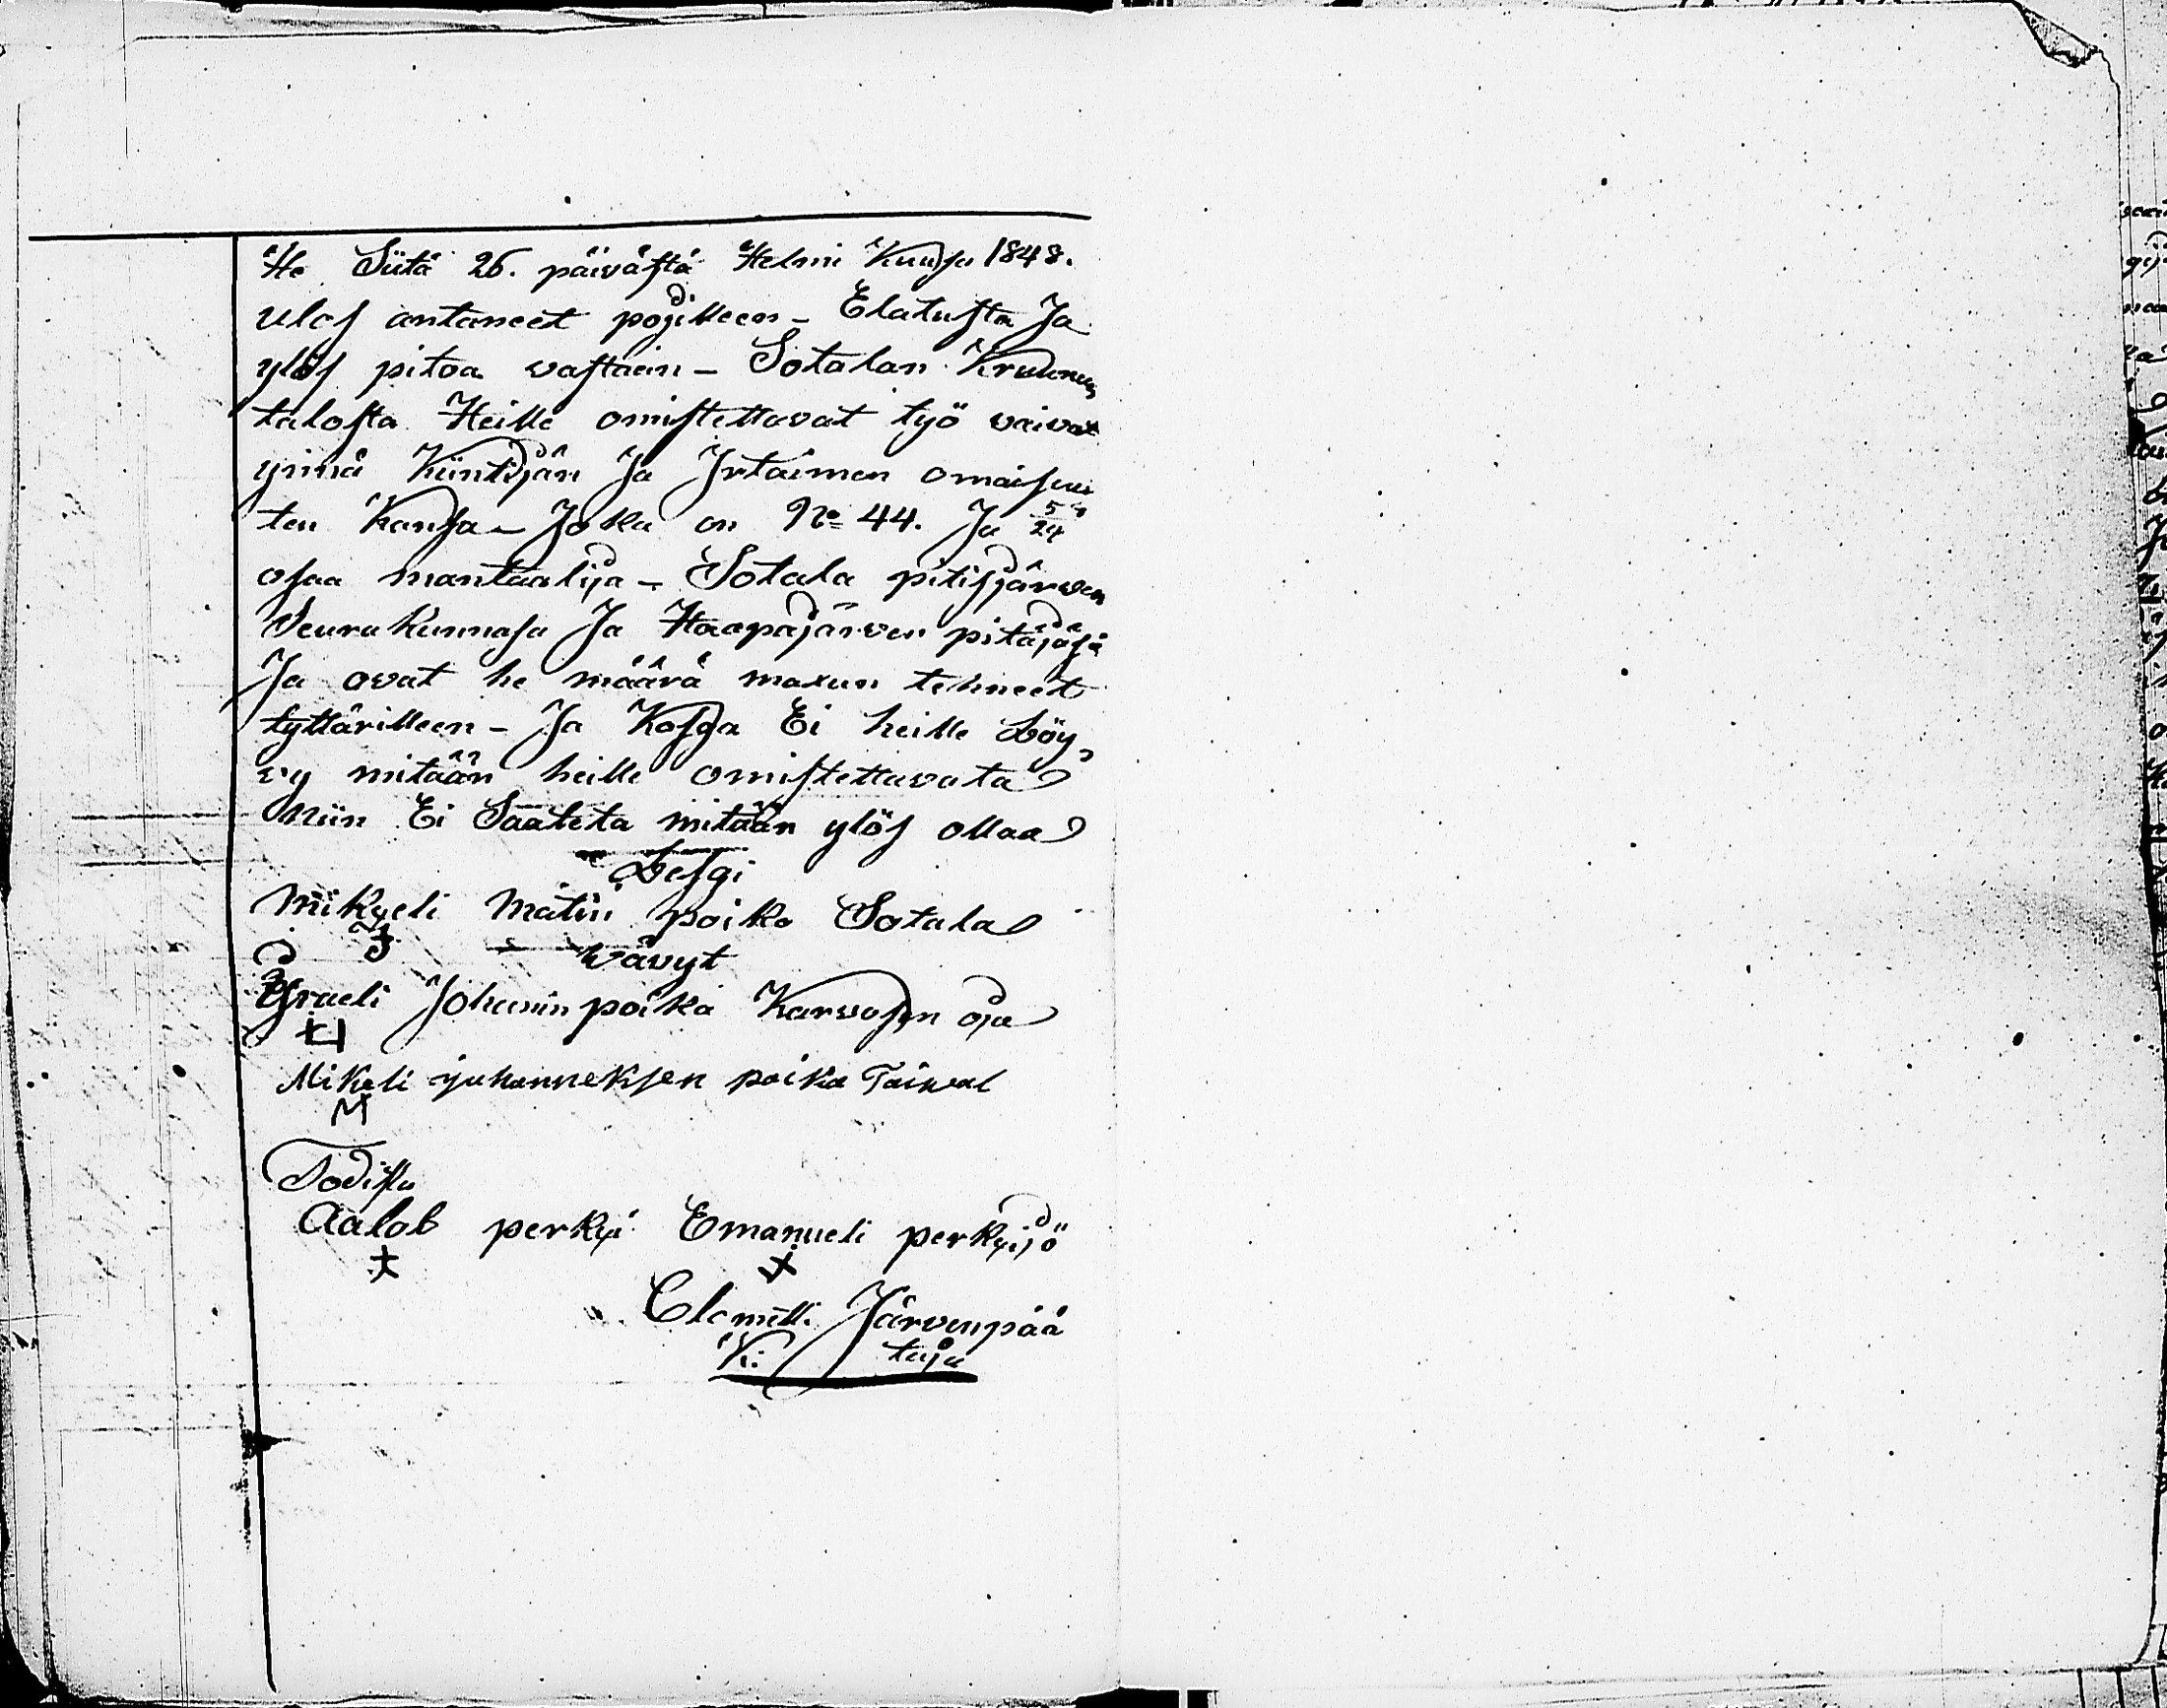 He Siitä 26. päivästä Helmi Kuusa 1848.
ulos antaneet pojilleen - Elatusta Ja
ylös pitoa vastaan - Sotalan Kruunun
talosta Heille omistettavat työ vaivat
ynnä Kiintijän Ja Irtaimen omaisuu
ten Kansa - Joka on No 44. Ja 5/24
osaa mantaalija - Sotala pitisjärven
Seurakunnasa Ja Haapajärven pitäjäsä
Ja ovat he määrä maxun tehneet
tyttärilleen - Ja Kosga Ei heille Löy,
vy mitään heille omistettavata
Niin Ei Saateta mitään ylös ottaa
Lesgi
Mikyeli Matin poika Sotala
Vävyt
Israeli Johanin poika Karvosen oja
Mikeli juhanneksen poika Taival
M
Todista
Aalob perkyi Emanueli perkyijö
Clometti Järvenpää
Ki: taja